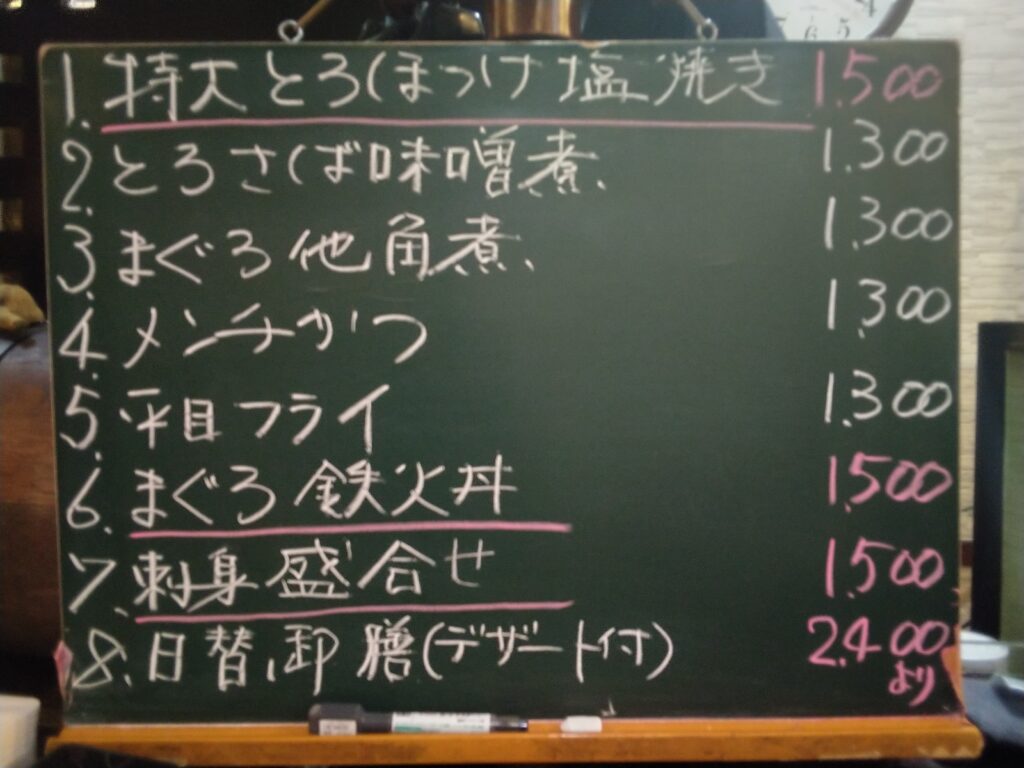 1. 特大とろほっけ塩焼き 1.500
2. とろさば味噌煮 1.300
3. まぐろ他角煮 1.300
4. メンチかつ 1.300
5. 平目フライ 1.300
6. まぐろ鉄火丼 1.500
7. 刺身盛合せ 1.500
8. 日替御膳(デザート付) 2.400
より
4
5
6